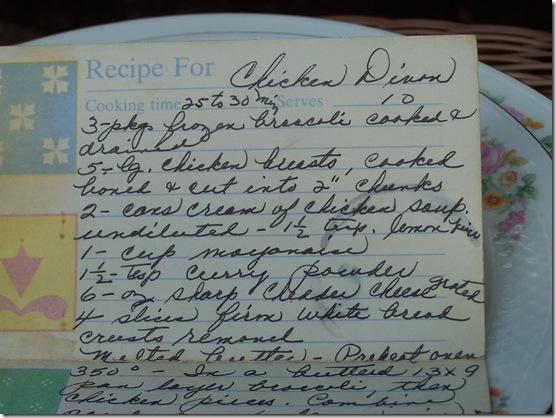 Recipe For Chicken Divan
Cooking time 25 to 30 min Serves 10
3-pkgs frozen broccoli cooked &
drained
5-lg. chicken breasts, cooked
boned & cut into 2" chunks
2- cans cream of chicken soup.
undiluted - 1½ tsp. lemon juice
1- cup mayonaise
1½-tsp curry powder
6-oz sharp chedder cheese grated
4 slices firm white bread
crusts removed
Melted butter - Preheat oven
350° - In a buttered 13x9
pan layer broccoli, then
chicken pieces. Combine